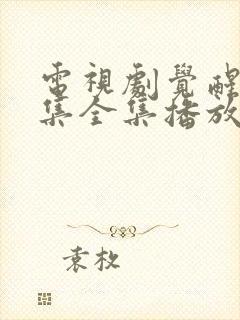 電視劇覺醒
集全集播放
袁枚